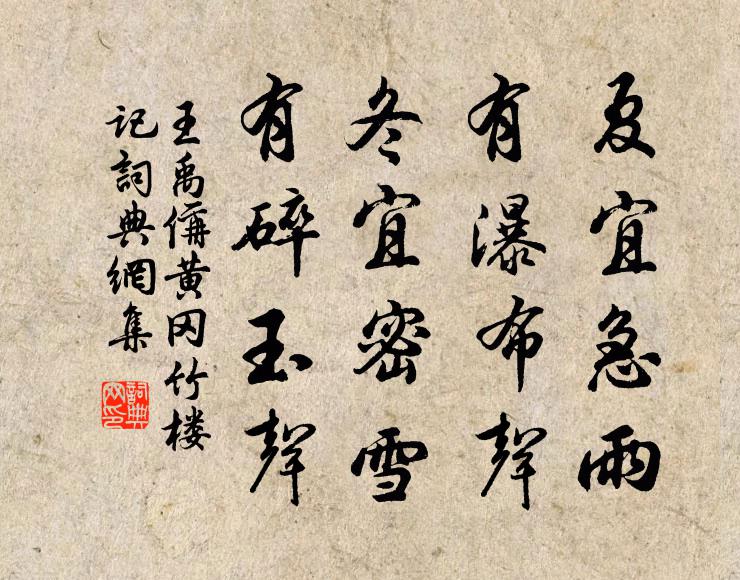 夏宜急雨
有瀑布聲
冬宜密雪
有碎玉聲
王禹偁黄冈竹楼
记詞典網集
詞典
网印